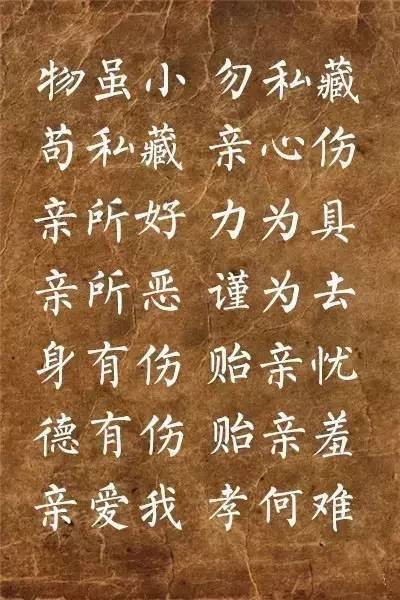 物虽小 勿私藏
苟私藏 亲心伤
亲所好 力为具
亲所恶 谨为去
身有伤 贻亲忧
德有伤 贻亲羞
亲爱我 孝何难